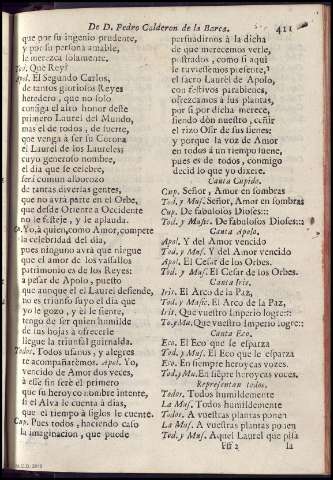 De D. Pedro Calderon de la Barca. 411
que por su ingenio prudente,
y por su persona amable,
le merezca solamente.
Tod. Que Rey?
Apol. El Segundo Carlos,
de tantos gloriosos Reyes
heredero, que no solo
consiga el alto honor deste
primero Laurel del Mundo,
mas el de todos, de suerte,
que venga á ser su Corona
el Laurel de los Laureles;
cuyo generoso nombre,
el dia que le celebre,
será comun alborozo
de tantas diversas gentes,
que no avrá parte en el Orbe,
que desde Oriente a Occidente
no le festeje, y le aplauda.
Cu. Yo, à quien, como Amor, compete
la celebridad del dia,
pues ninguno avrà que niegue
que el amor de los vassallos
patrimonio es de los Reyes:
a pesar de Apolo, puesto
que aunque el el Laurel defiende,
no es triunfo suyo el dia
que yo le gozo, y él le siente,
tengo de ser quien humilde
de sus hojas à ofrecerle
llegue la triunfal guirnalda.
Todos. Todos usanos, y alegres
te acompañarèmos. Apol. Yo,
vencido de Amor dos veces,
à esse fin serè el primero
que su heroyco nombre intente,
si el Alva le cuenta à dias,
que el tiempo à siglos le cuente.
Cup. Pues todos, haciendo caso
la imaginacion, que puede
persuadirnos à la dicha
de que merecemos verle,
postrados, como si aqui
le tuviessemos presente,
el sacro Laurel de Apolo,
con festivos parabienes,
ofrezcamos à sus plantas,
por si por dicha merece,
siendo dòn nuestro, ceñir
el rizo Ofir de sus sienes;
y porque la voz de Amor
en todos à un tiempo suene,
pues es de todos, conmigo
decid lo que yo dixere.
Canta Cupido.
Cup. Señor, Amor en sombras
Tod. y Mus. Señor, Amor en sombras
Cup. De fabulosos Dioses:::
Tod. y Music. De fabulosos Dioses:::
Canta Apolo.
Apol. Y del Amor vencido
Tod. y Mus. Y del Amor vencido
Apol. El Cesar de los Orbes.
Tod. y Mus. El Cesar de los Orbes.
Canta Iris.
Iris. El Arco de la Paz,
Tod. y Music. El Arco de la Paz,
Iris. Que vuestro Imperio logre:::
To. y Mu. Que vuestro Imperio logre:::
Canta Eco.
Eco. El Eco que le esparza
Tod. y Mus. El Eco que le esparza
Eco. En siempre heroycas voces.
Tod. y Mu. En siẽpre heroycas voces.
Representan todos.
Todos. Todos humildemente
La Mus. Todos humildemente
Todos. A vuestras plantas ponen
La Mus. A vuestras plantas ponen
Tod. y Mus. Aquel Laurel que pisa
Fff 2 la